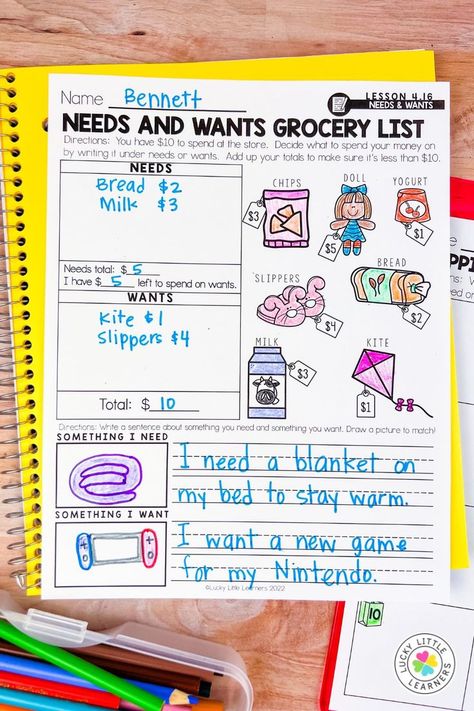 Name Bennett
LESSON 4.16
NEEDS & WANTS
NEEDS AND WANTS GROCERY LIST
Directions: You have $10 to spend at the store. Decide what to spend your money on
by writing it under needs or wants. Add up your totals to make sure it's less than $10.
NEEDS
Bread $2
Milk $3
Needs total: $ 5
I have $ 5 left to spend on wants.
WANTS
Kite $1
Slippers $4
Total: $ 10
CHIPS
$3
DOLL
$5
YOGURT
$1
SLIPPERS
$4
BREAD
$2
MILK
$3
KITE
$1
Directions: Write a sentence about something you need and something you want. Draw a picture to match!
SOMETHING I NEED
I need a blanket on
my bed to stay warm.
SOMETHING I WANT
I want a new game
for my Nintendo.
©Lucky Little Learners 2022
10
LUCKY LITTLE LEARNERS